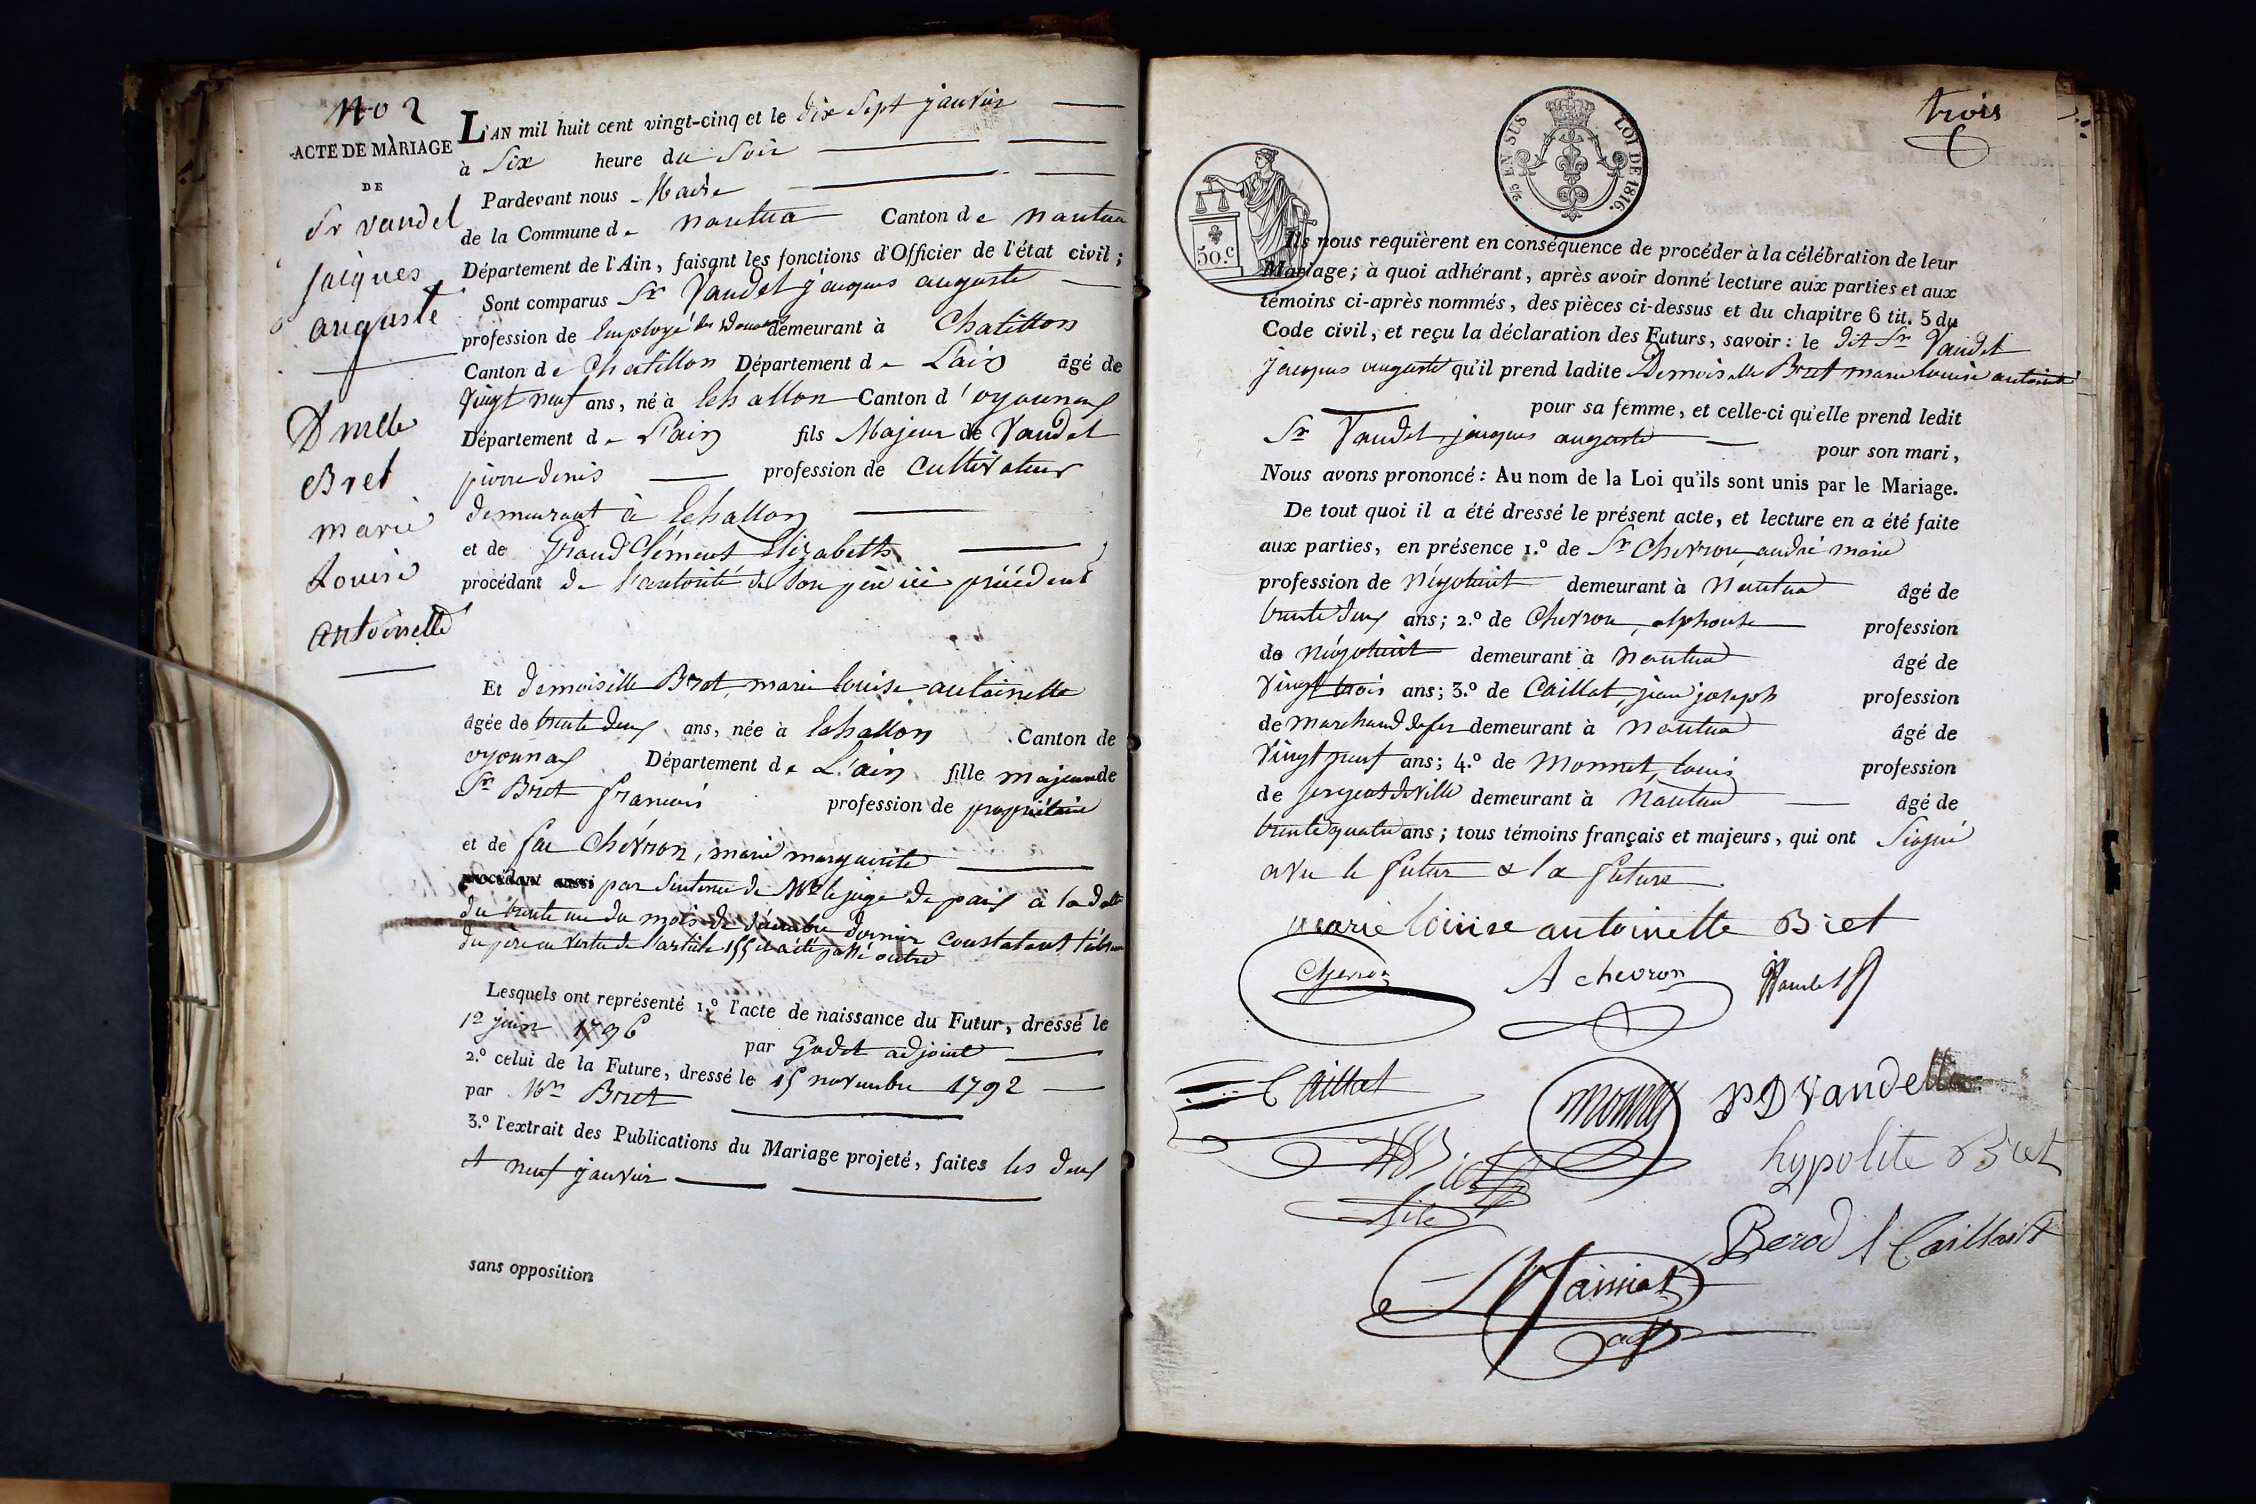 No 2
ACTE DE MARIAGE
DE
Sr Vandel
jacques
auguste
Dmelle
Bret
marie
Louise
antoinette
L'AN mil huit cent vingt-cinq et le dix sept janvier
à Six heure du Soir
Pardevant nous Maire
de la Commune de nantua Canton de nantua
Département de l'Ain, faisant les fonctions d'Officier de l'état civil;
Sont comparus Sr Vandel jacques auguste
profession de Employé des Douanes demeurant à Chatillon
Canton de Chatillon Département de L'ain âgé de
Vingt neuf ans, né à Echallon Canton d'oyonnax
Département de L'ain fils Majeur de Vandel
pierre denis profession de Cultivateur
demeurant à Echallon
et de Grand Clément Elizabeth
procédant de l'autorité de Son père ici présent
Et demoiselle Bret marie louise antoinette
âgée de trente deux ans, née à Echallon Canton de
oyonnax Département de L'ain fille majeure de
Sr Bret françois profession de propriétaire
et de fue Chevron, marie marguerite
procédant aussi par Sentence de Mr le juge de paix à la date
du trente un du mois de décembre dernier Constatant l'absence
du père en Vertu de l'article 155 il a été passé outre
Lesquels ont représenté 1.º l'acte de naissance du Futur, dressé le
12 juin 1796 par Godet adjoint
2.º celui de la Future, dressé le 15 novembre 1792
par Mr Bret
3.º l'extrait des Publications du Mariage projeté, faites les deux
et neuf janvier
sans opposition
trois
2/5 EN SUS LOI DE 1816.
50.c
Ils nous requièrent en conséquence de procéder à la célébration de leur
Mariage; à quoi adhérant, après avoir donné lecture aux parties et aux
témoins ci-après nommés, des pièces ci-dessus et du chapitre 6 tit. 5 du
Code civil, et reçu la déclaration des Futurs, savoir: le dit Sr Vandel
jacques auguste qu'il prend ladite Demoiselle Bret marie louise antoinette
pour sa femme, et celle-ci qu'elle prend ledit
Sr Vandel, jacques auguste pour son mari,
Nous avons prononcé: Au nom de la Loi qu'ils sont unis par le Mariage.
De tout quoi il a été dressé le présent acte, et lecture en a été faite
aux parties, en présence 1.º de Sr Chevron, andré marie
profession de Négotient demeurant à Nantua âgé de
trente deux ans; 2.º de Chevron, alphonse profession
de négotient demeurant à nantua âgé de
Vingt trois ans; 3.º de Caillat, jean joseph profession
de Marchand de fer demeurant à nantua âgé de
Vingt neuf ans; 4.º de Monnet, louis profession
de Sergent de Ville demeurant à Nantua âgé de
trente quatre ans; tous témoins français et majeurs, qui ont Signé
avec le futur & la future.
marie loiuise antoinette Bret
Chevron A chevron Vandel
Caillat monnet P D Vandel
hypolite Bret
fils
Berod A Caillat
adj